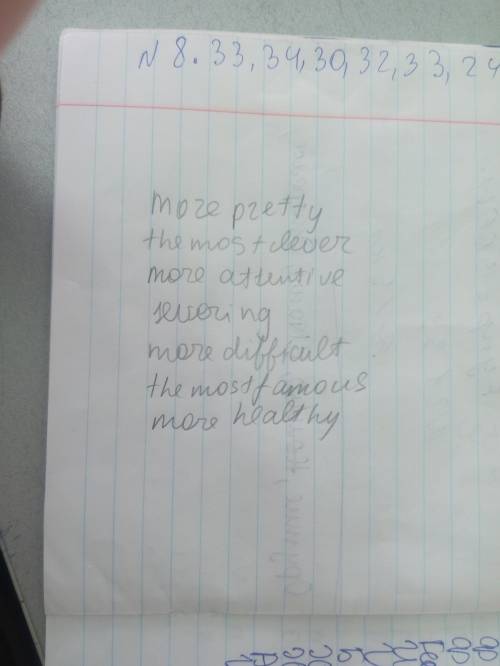 N 8. 33, 34, 30, 32, 33, 24
more pretty
the most clever
more attentive
more difficult
the most famous
more healthy